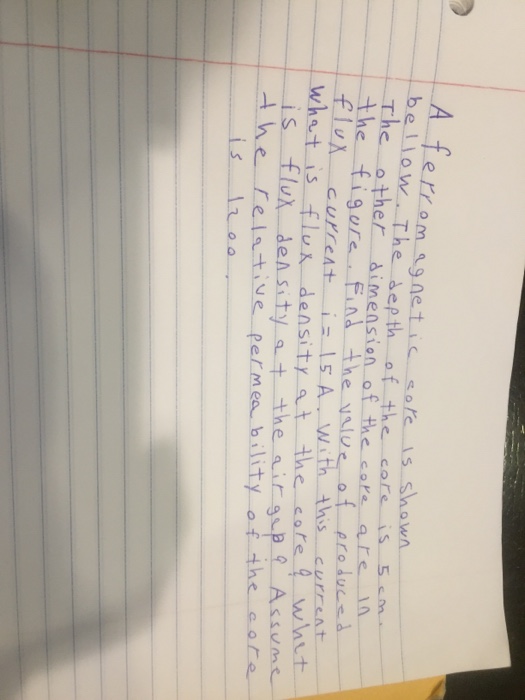 A ferromagnetic core is shown
bellow. The depth of the core is 5cm.
The other dimension of the core are in
the figure. Find the value of produced
flux current i = 15 A. with this current
what is flux density at the core? what
is flux density at the air gap? Assume
the relative permeability of the core
is 1200.